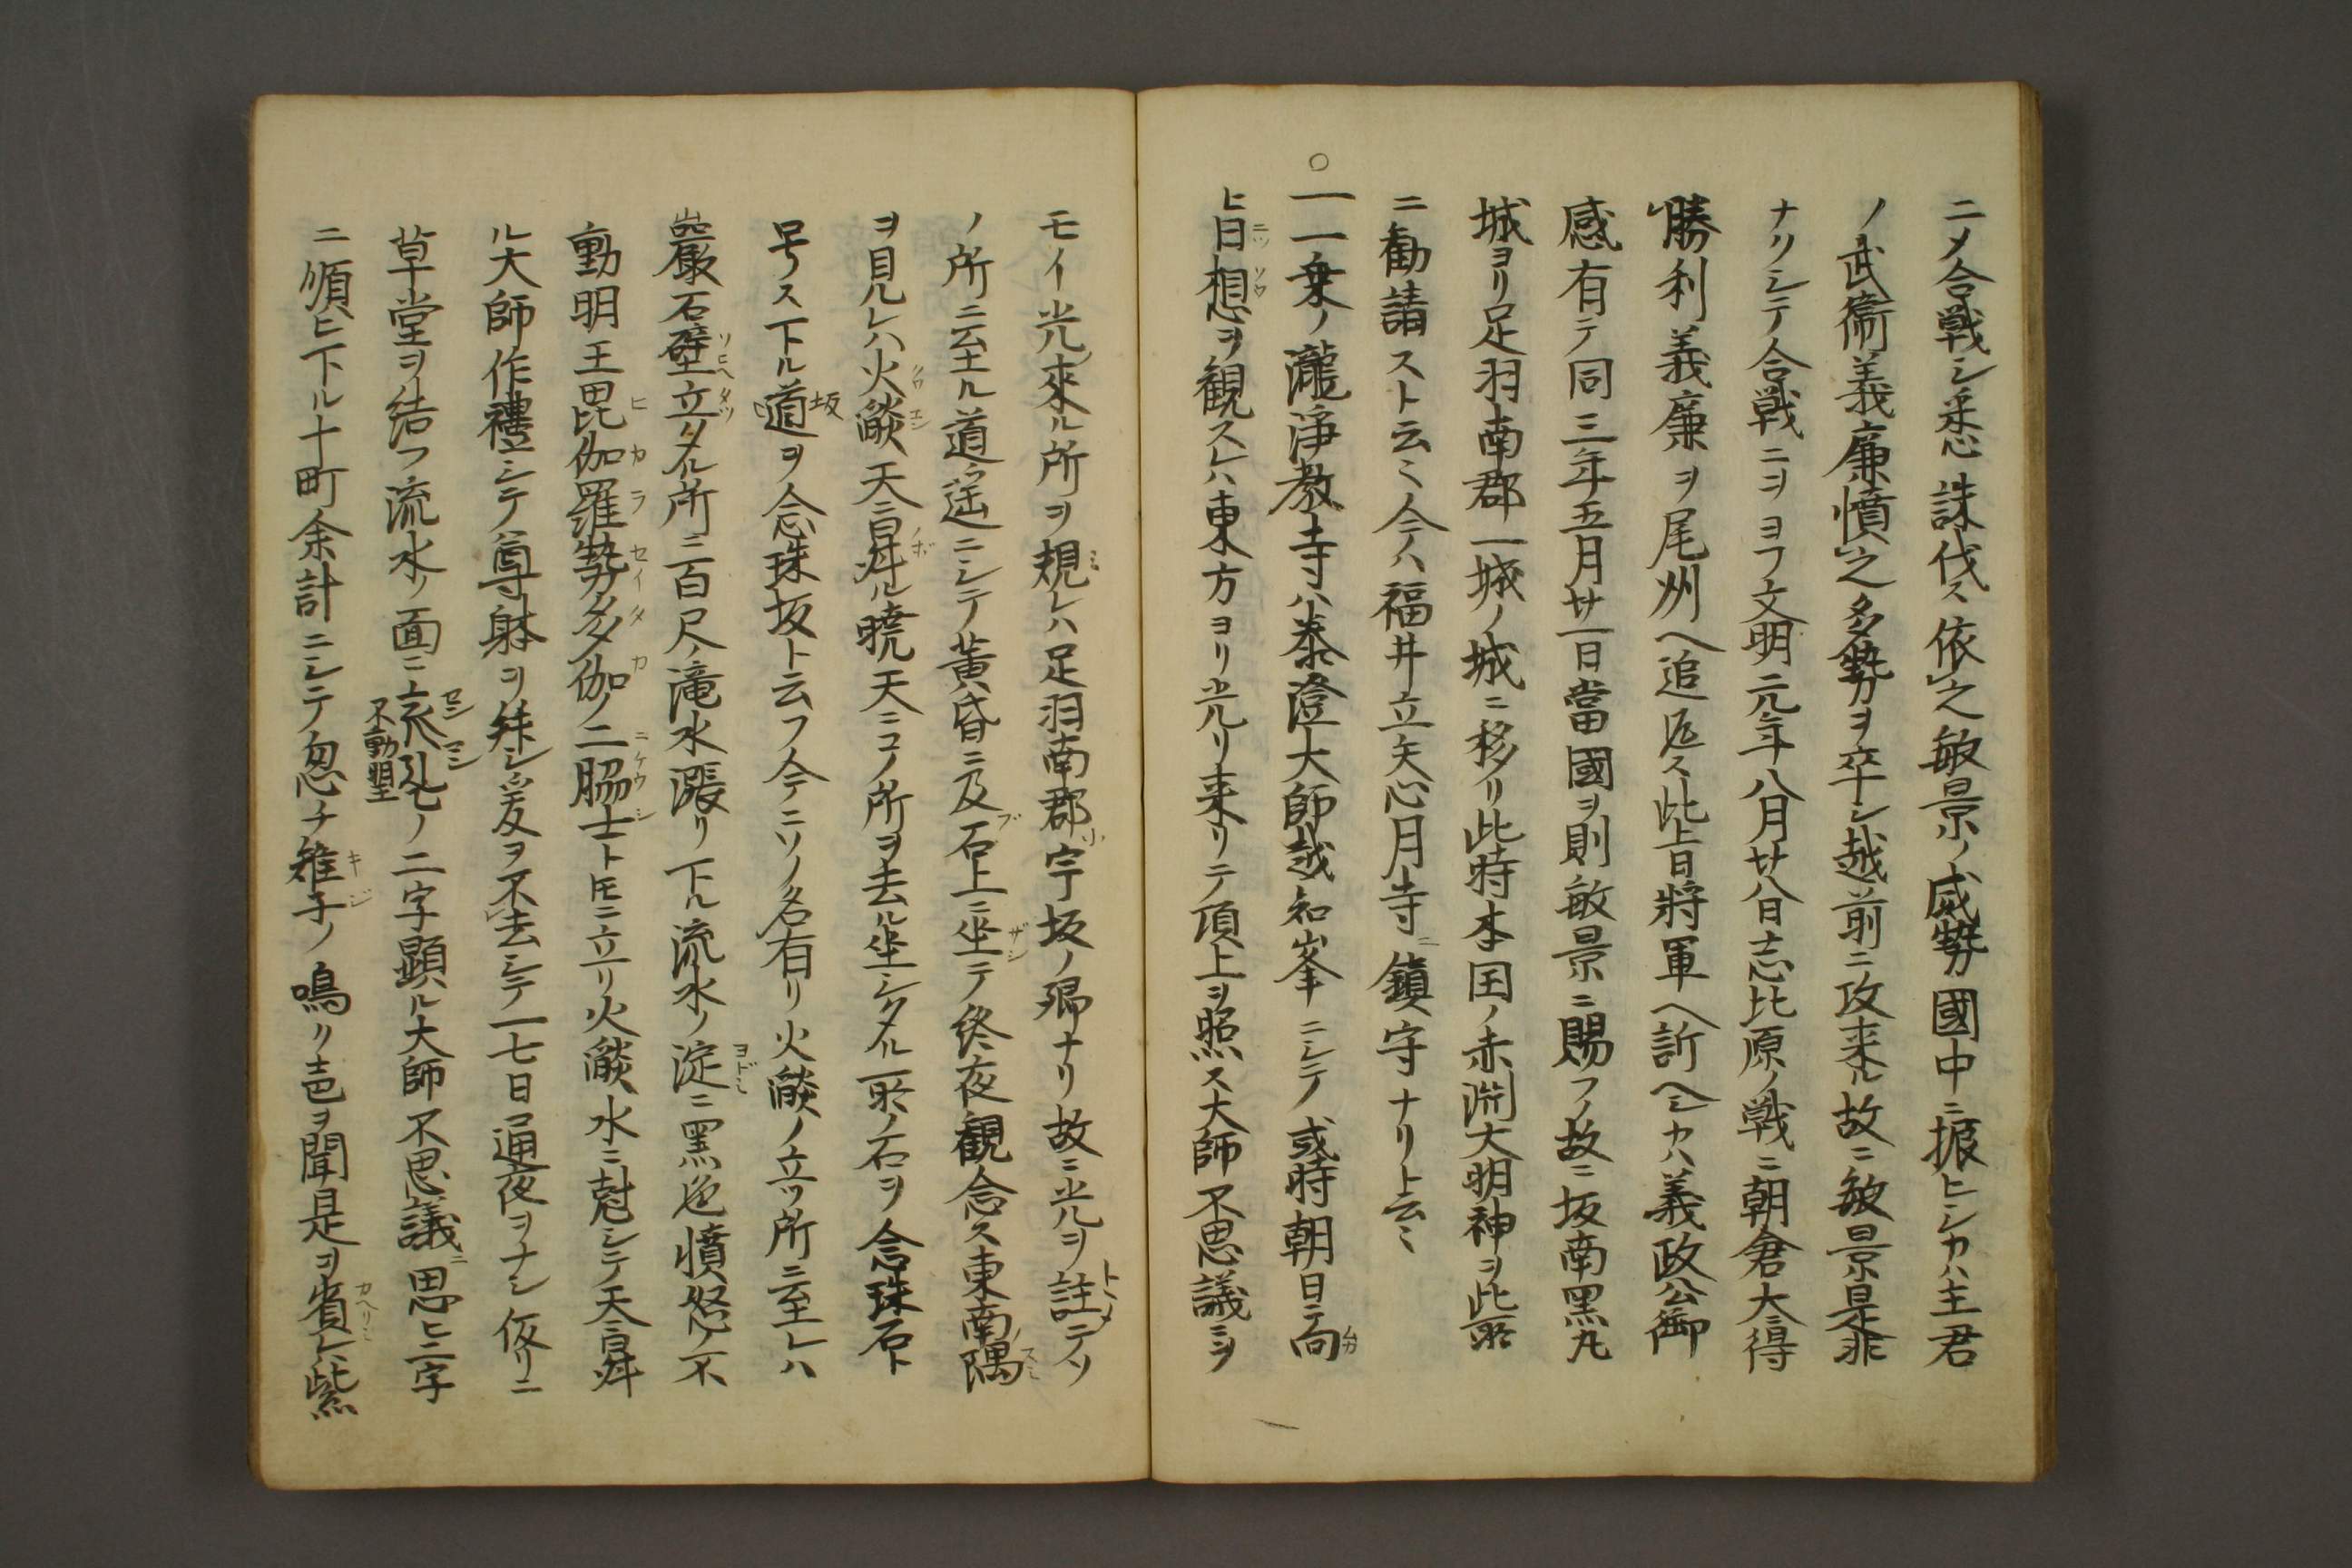 ニメ合戦シ悉誅伐ス依之敏景ノ威勢國中ニ振ヒシカハ主君
ノ武衞義廉憤之多勢ヲ卒シ越前ニ攻来ル故ニ敏景是非
ナリシテ合戦ニヲヨフ文明元年八月廿八日志比原ノ戦ニ朝倉大ニ得
勝利義廉ヲ尾州ヘ追返ス此上日將軍ヘ訴ヘシカハ義政公御
感有テ同三年五月廿一日當國ヲ則敏景ニ賜フノ故ニ坂南黒丸
城ヨリ足羽南郡一城ノ城ニ移リ此時本国ノ赤渕大明神ヲ此所
ニ勧請スト云ミ今ハ福井立矢心月寺ニ鎮守ナリト云ミ
○一一乗ノ瀧淨教寺ハ泰澄大師越知峯ニシテ或時朝日ニ向ムカ
ヒ日ニツ想ソウヲ観スレハ東方ヨリ光リ来リテ頂上ヲ照ス大師不思議ニヲ
モイ光來ル所ヲ規ミレハ足羽南郡宇坂ノ郷ナリ故ニ光ヲ註トメテソ
ノ所ニ至ル道遥ニシテ黄昏ニ及フ石上ニ坐ザシテ終夜観念ス東南ノ隅スミ
ヲ見レハ火焔クワエン天ニ昇ノボル暁天ニコノ所ヲ去ル坐シタル所ノ石ヲ念珠石ト
号ス下ル道坂ヲ念珠坂ト云フ今ニソノ名有リ火焔ノ立ツ所ニ至レハ
巖石壁ソヒヘ立タツタル所ニ百尺ノ滝水漲リ下ル流水ノ淀ヨドミニ黒色憤怒ノ不
動明王毘ヒ伽カ羅ラ勢セイ多タ伽カノ二脇士ニケウシト㆑モニ立リ火焔水ニ尅シテ天ニ昇
ル大師作禮シテ尊躰ヲ拜シ爰ヲ不去シテ一七日通夜ヲナシ仮リニ
草堂ヲ結フ流水ノ面ニセンマン不動聖ノ二字顕ル大師不思議ニ思ヒ二字
ニ順ヒ下ル十町余計ニシテ忽チ雉子キジノ鳴ク声ヲ聞是ヲ賓カヘリミレハ紫